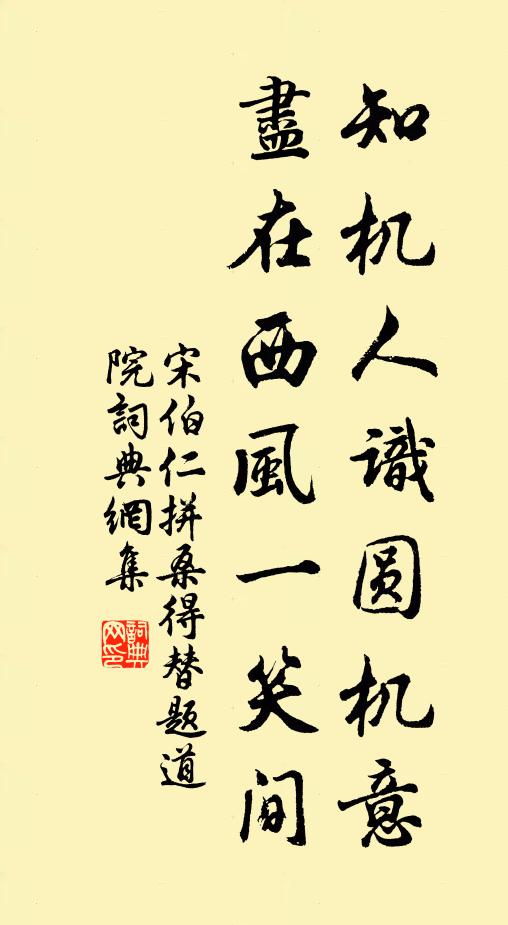 知机人識圆机意
盡在西風一笑间
宋伯仁拼桑得替题道
院詞典網集
詞典
网印